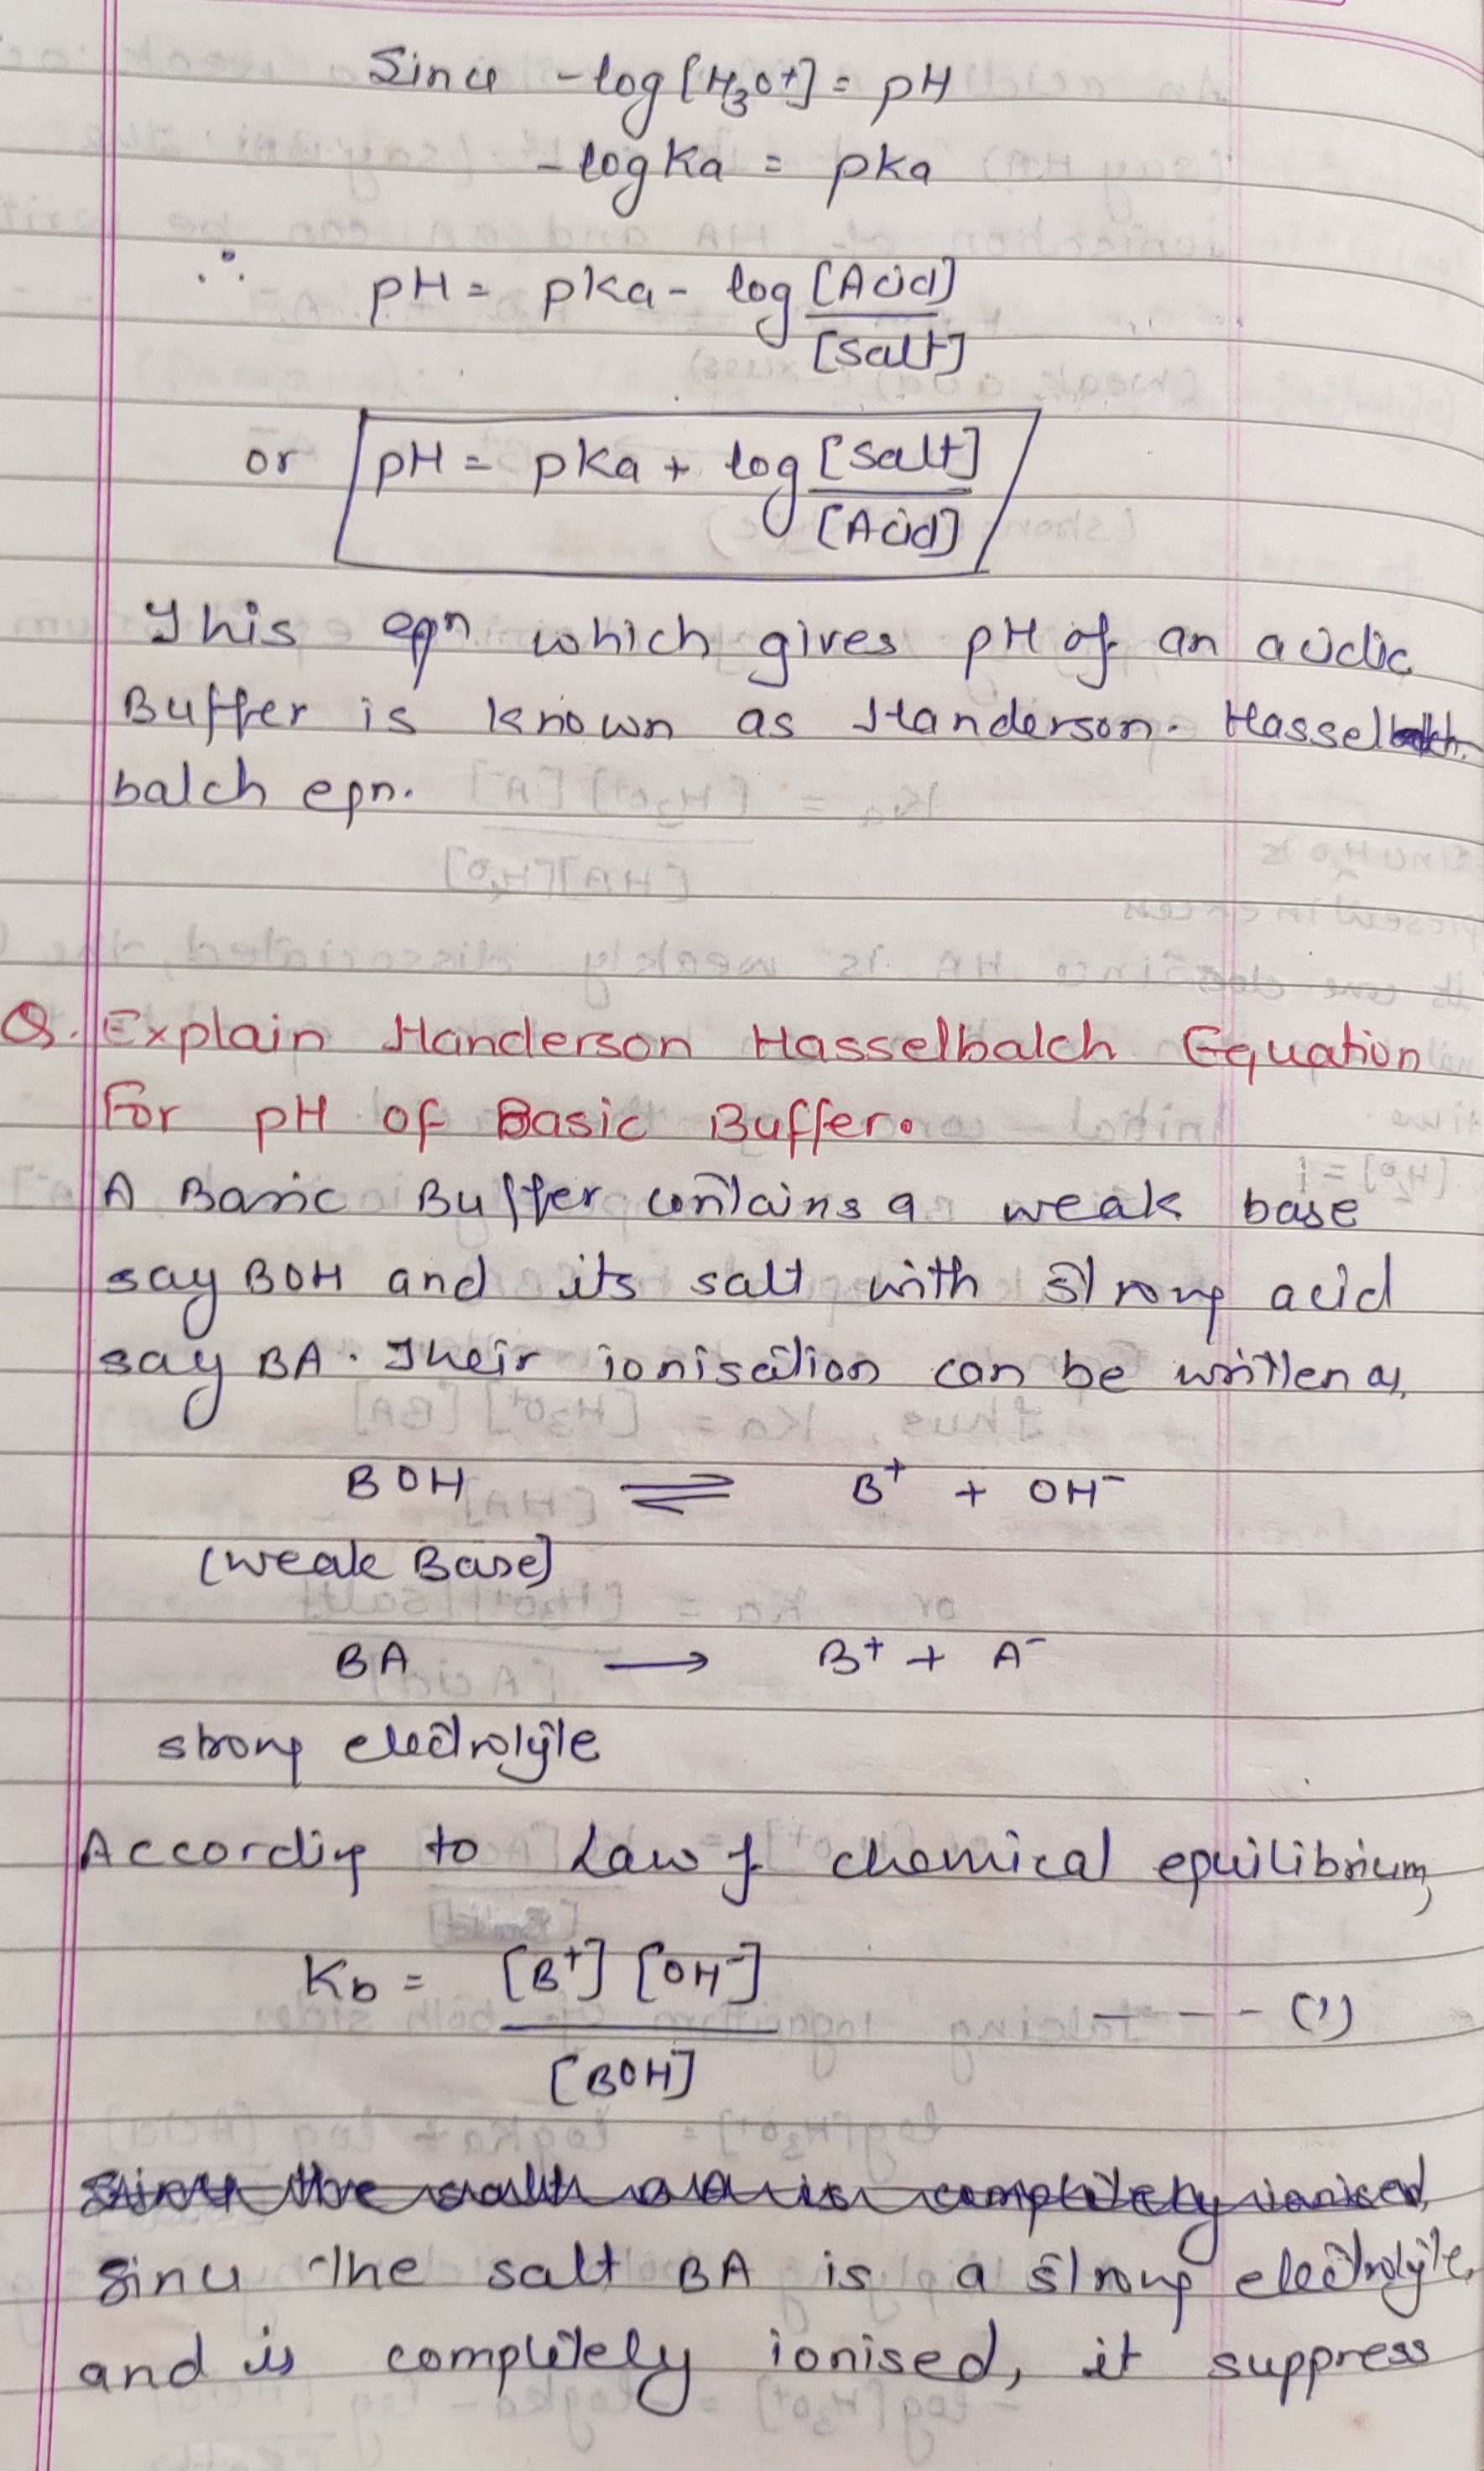 Since -log[H₃O+] = pH
-log Ka = pKa
∴ pH = pKa - log [Acid]
[Salt]
or pH = pKa + log [Salt]
[Acid]
This eqn which gives pH of an acidic
Buffer is known as Handerson. Hassel
balch eqn.
Q. Explain Handerson Hasselbalch Equation
For pH of Basic Buffer.
A Basic Buffer contains a weak base
say BOH and its salt with strong acid
say BA. Their ionisation can be written as,
BOH ⇌ B⁺ + OH⁻
(weak Base)
BA → B⁺ + A⁻
strong electrolyte
According to Law of chemical equilibrium,
Kb = [B⁺] [OH⁻] - - - - (1)
[BOH]
Since the salt BA is completely ionised,
Since the salt BA is a strong electrolyte,
and is completely ionised, it suppress